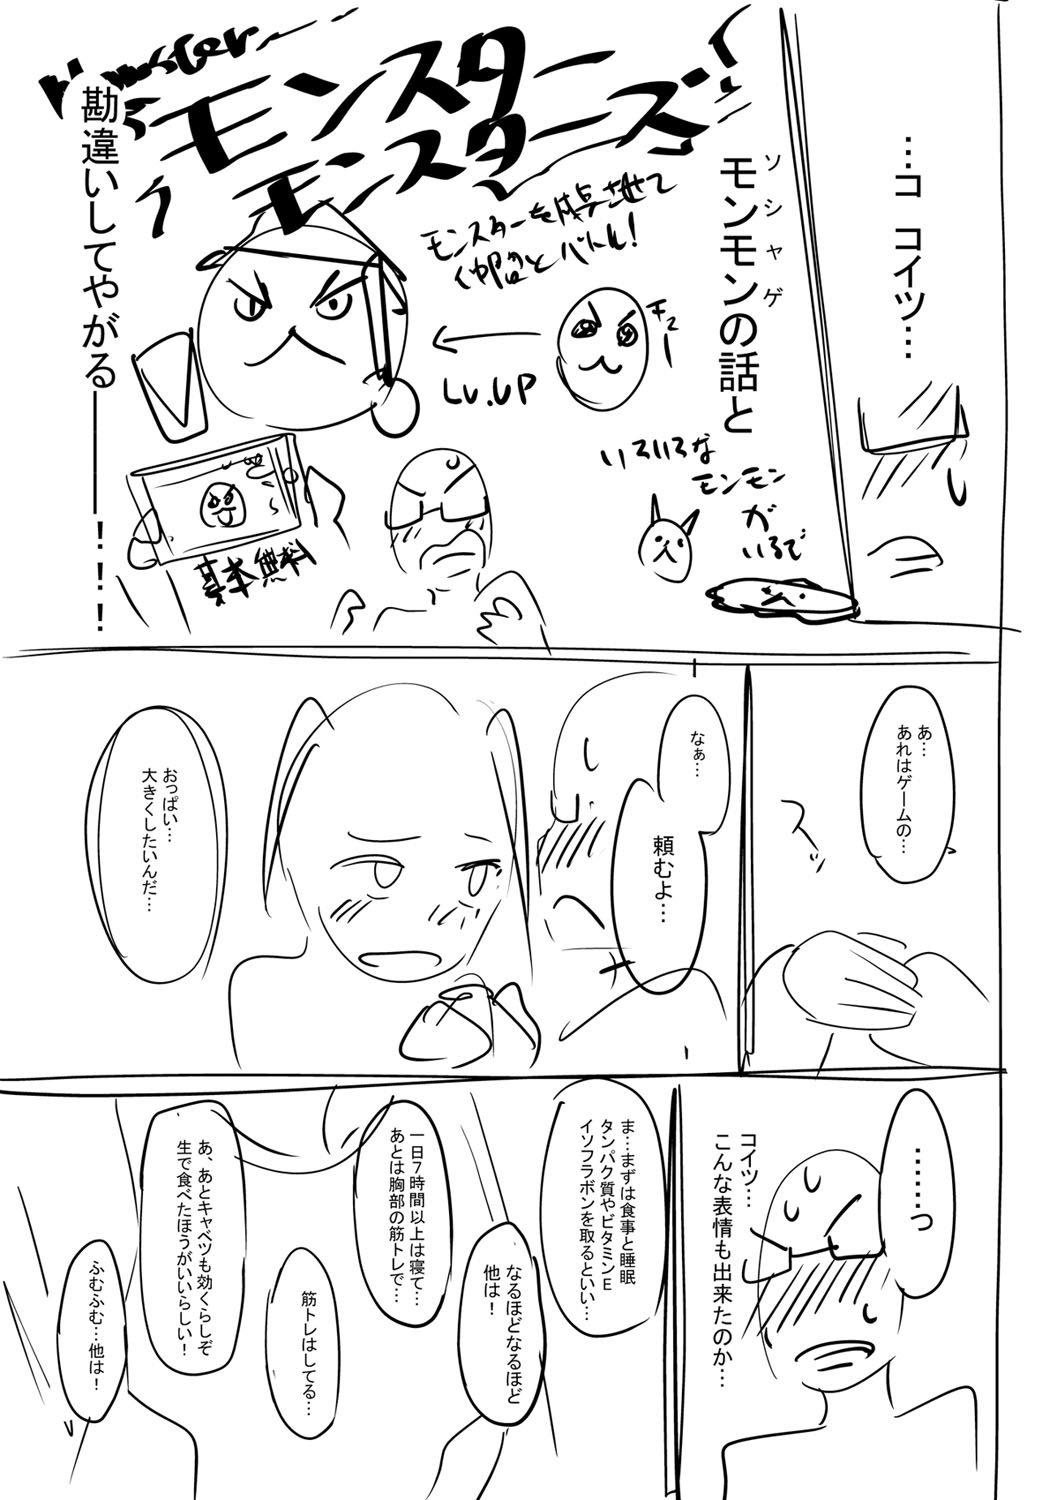 …コ コイツ…
ソシャゲ
モンモンの話と
モンスター
モンスターズ!
モンスターを
バトル!
Lv.UP
いろいろな
モンモン
が
いるで
基本無料
勘違いしてやがる━━━!!!
あ…
あれはゲームの…
スッ
なぁ…
頼むよ…
おっぱい…
大きくしたいんだ…
……っ
コイツ…
こんな表情も出来たのか…
ま…まずは食事と睡眠
タンパク質やビタミンE
イソフラボンを取るといい…
なるほどなるほど
他は!
一日7時間以上は寝て…
あとは胸部の筋トレで…
筋トレはしてる…
あ、あとキャベツも効くらしぞ
生で食べたほうがいいらしい!
ふむふむ…他は!